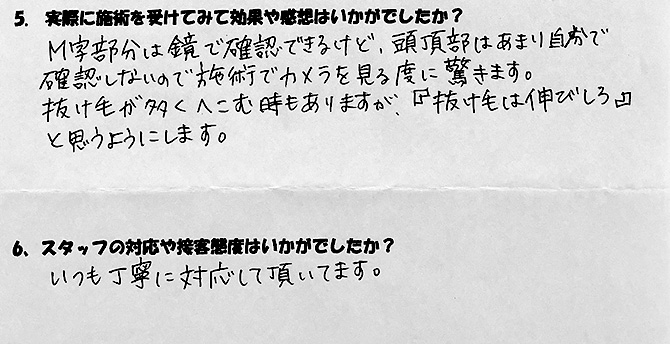 5. 実際に施術を受けてみて効果や感想はいかがでしたか？
M字部分は鏡で確認できるけど、頭頂部はあまり自分で
確認しないので施術でカメラを見る度に驚きます。
抜け毛が多くへこむ時もありますが、『抜け毛は伸びしろ』
と思うようにします。
6、スタッフの対応や接客態度はいかがでしたか？
いつも丁寧に対応して頂いてます。